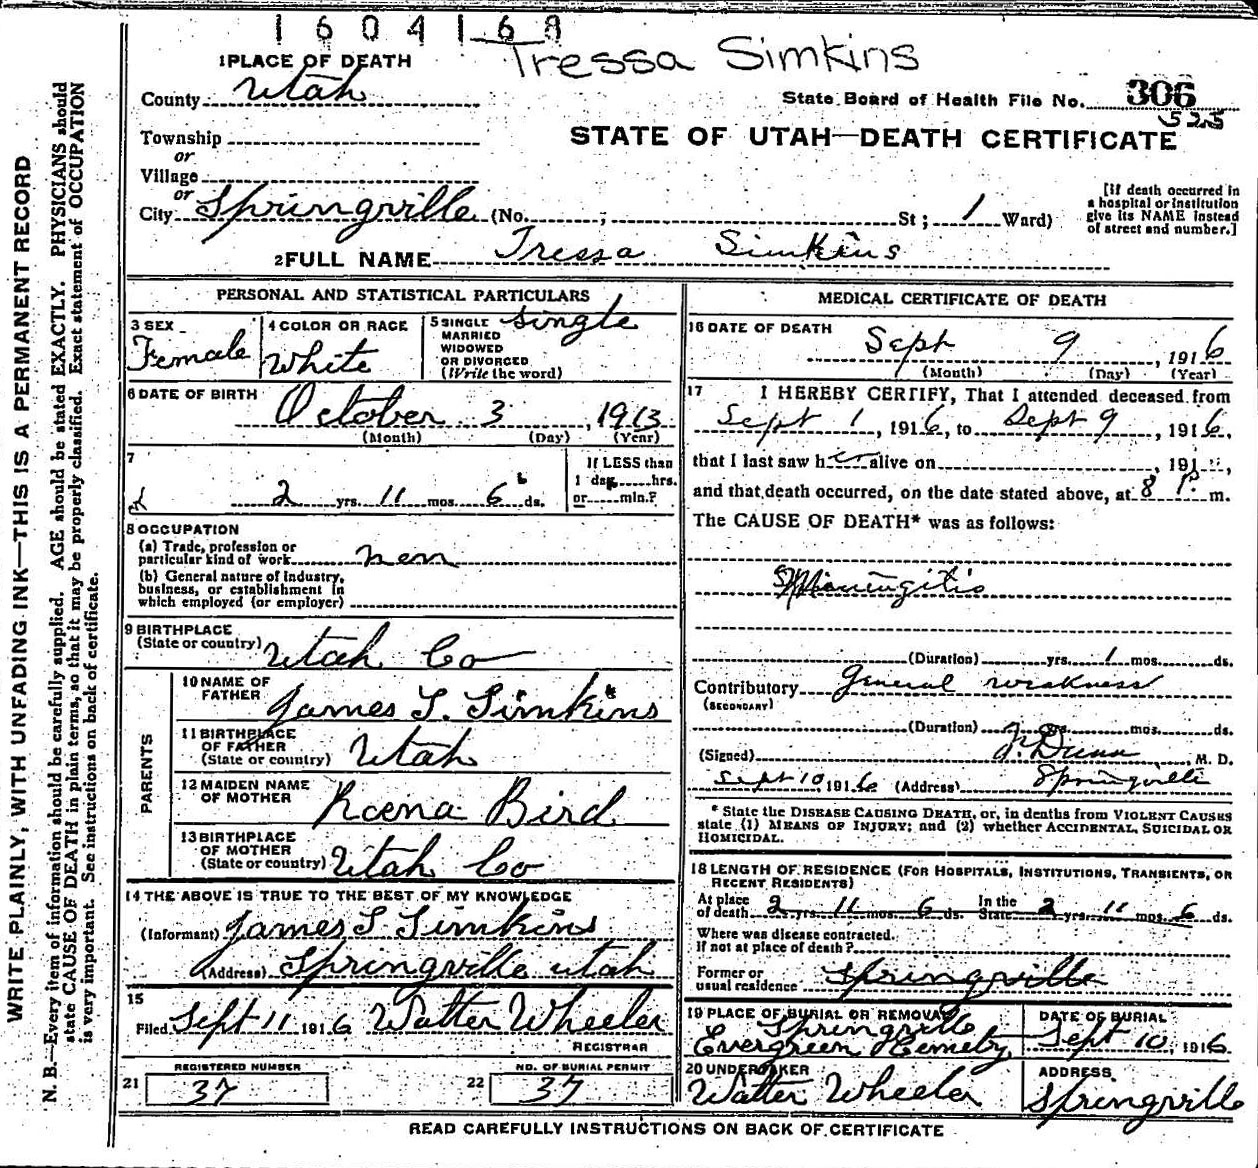 1604168
Tressa Simkins
1 PLACE OF DEATH
County Utah
State Board of Health File No. 306
525
Township
or
Village
or
City Springville (No. ; St ; 1 Ward)
STATE OF UTAH—DEATH CERTIFICATE
[If death occurred in
a hospital or institution
give its NAME instead
of street and number.]
2 FULL NAME Tressa Simkins
PERSONAL AND STATISTICAL PARTICULARS
3 SEX
Female
4 COLOR OR RACE
White
5 SINGLE
MARRIED
WIDOWED
OR DIVORCED
(Write the word)
Single
6 DATE OF BIRTH
October 3, 1913
(Month) (Day) (Year)
7
2 yrs. 11 mos. 6 ds.
If LESS than
1 day hrs.
or min.?
8 OCCUPATION
(a) Trade, profession or
particular kind of work
(b) General nature of industry,
business, or establishment in
which employed (or employer)
9 BIRTHPLACE
(State or country) Utah Co
PARENTS
10 NAME OF
FATHER James S. Simkins
11 BIRTHPLACE
OF FATHER
(State or country) Utah
12 MAIDEN NAME
OF MOTHER Roena Bird
13 BIRTHPLACE
OF MOTHER
(State or country) Utah Co
14 THE ABOVE IS TRUE TO THE BEST OF MY KNOWLEDGE
(Informant) James S Simkins
(Address) Springville Utah
15
Filed Sept 11 1916 Walter Wheeler
REGISTRAR
21 REGISTERED NUMBER
37
22 NO. OF BURIAL PERMIT
37
MEDICAL CERTIFICATE OF DEATH
16 DATE OF DEATH
Sept 9, 1916
(Month) (Day) (Year)
17 I HEREBY CERTIFY, That I attended deceased from
Sept 1, 1916, to Sept 9, 1916,
that I last saw her alive on , 191 ,
and that death occurred, on the date stated above, at 8 P. m.
The CAUSE OF DEATH* was as follows:
Meningitis
(Duration) yrs. 1 mos. ds.
Contributory General weakness
(SECONDARY)
(Duration) yrs. mos. ds.
(Signed) J. Dunn M. D.
Sept 10, 1916 (Address) Springville
* State the DISEASE CAUSING DEATH, or, in deaths from VIOLENT CAUSES
state (1) MEANS OF INJURY; and (2) whether ACCIDENTAL, SUICIDAL OR
HOMICIDAL.
18 LENGTH OF RESIDENCE (FOR HOSPITALS, INSTITUTIONS, TRANSIENTS, OR
RECENT RESIDENTS)
At place
of death 2 yrs. 11 mos. 6 ds. In the
State 2 yrs. 11 mos. 6 ds.
Where was disease contracted.
If not at place of death?
Former or
usual residence Springville
19 PLACE OF BURIAL OR REMOVAL
Springville
Evergreen Cemetery
DATE OF BURIAL
Sept 10, 1916
20 UNDERTAKER
Walter Wheeler
ADDRESS
Springville
READ CAREFULLY INSTRUCTIONS ON BACK OF CERTIFICATE
WRITE PLAINLY, WITH UNFADING INK—THIS IS A PERMANENT RECORD
N. B.—Every item of information should be carefully supplied. AGE should be stated EXACTLY. PHYSICIANS should
state CAUSE OF DEATH in plain terms, so that it may be properly classified. Exact statement of OCCUPATION
is very important. See instructions on back of certificate.